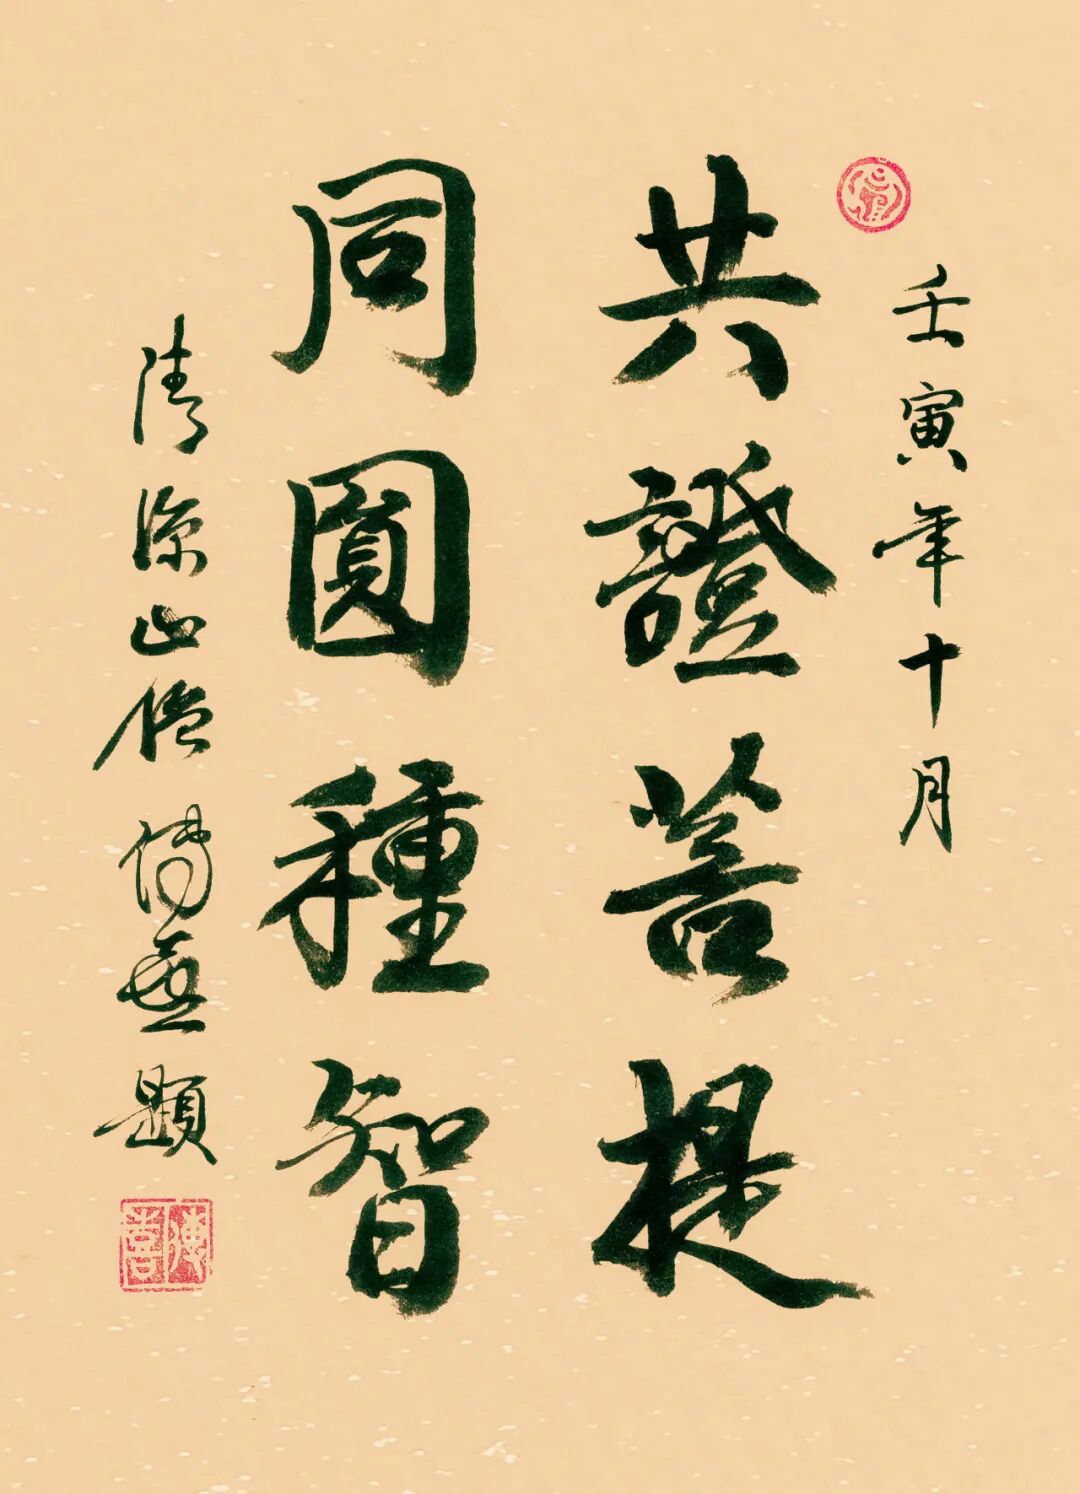 壬寅年十月
共證菩提
同圓種智
清涼山僧 傳喜題
傳喜